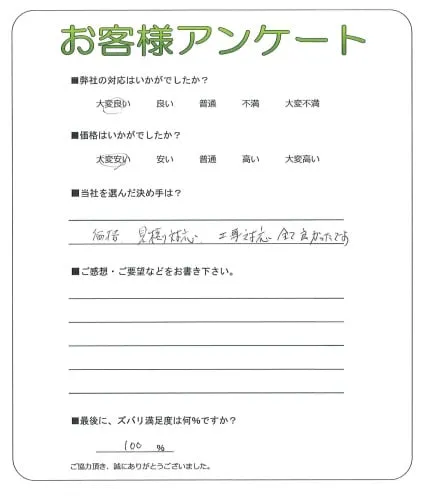 お客様アンケート
■弊社の対応はいかがでしたか?
大変良い 良い 普通 不満 大変不満
■価格はいかがでしたか?
大変安い 安い 普通 高い 大変高い
■当社を選んだ決め手は?
価格 見積り対応 工事対応 全て良かったです
■ご感想・ご要望などをお書き下さい。
■最後に、ズバリ満足度は何%ですか?
100 %
ご協力頂き、誠にありがとうございました。